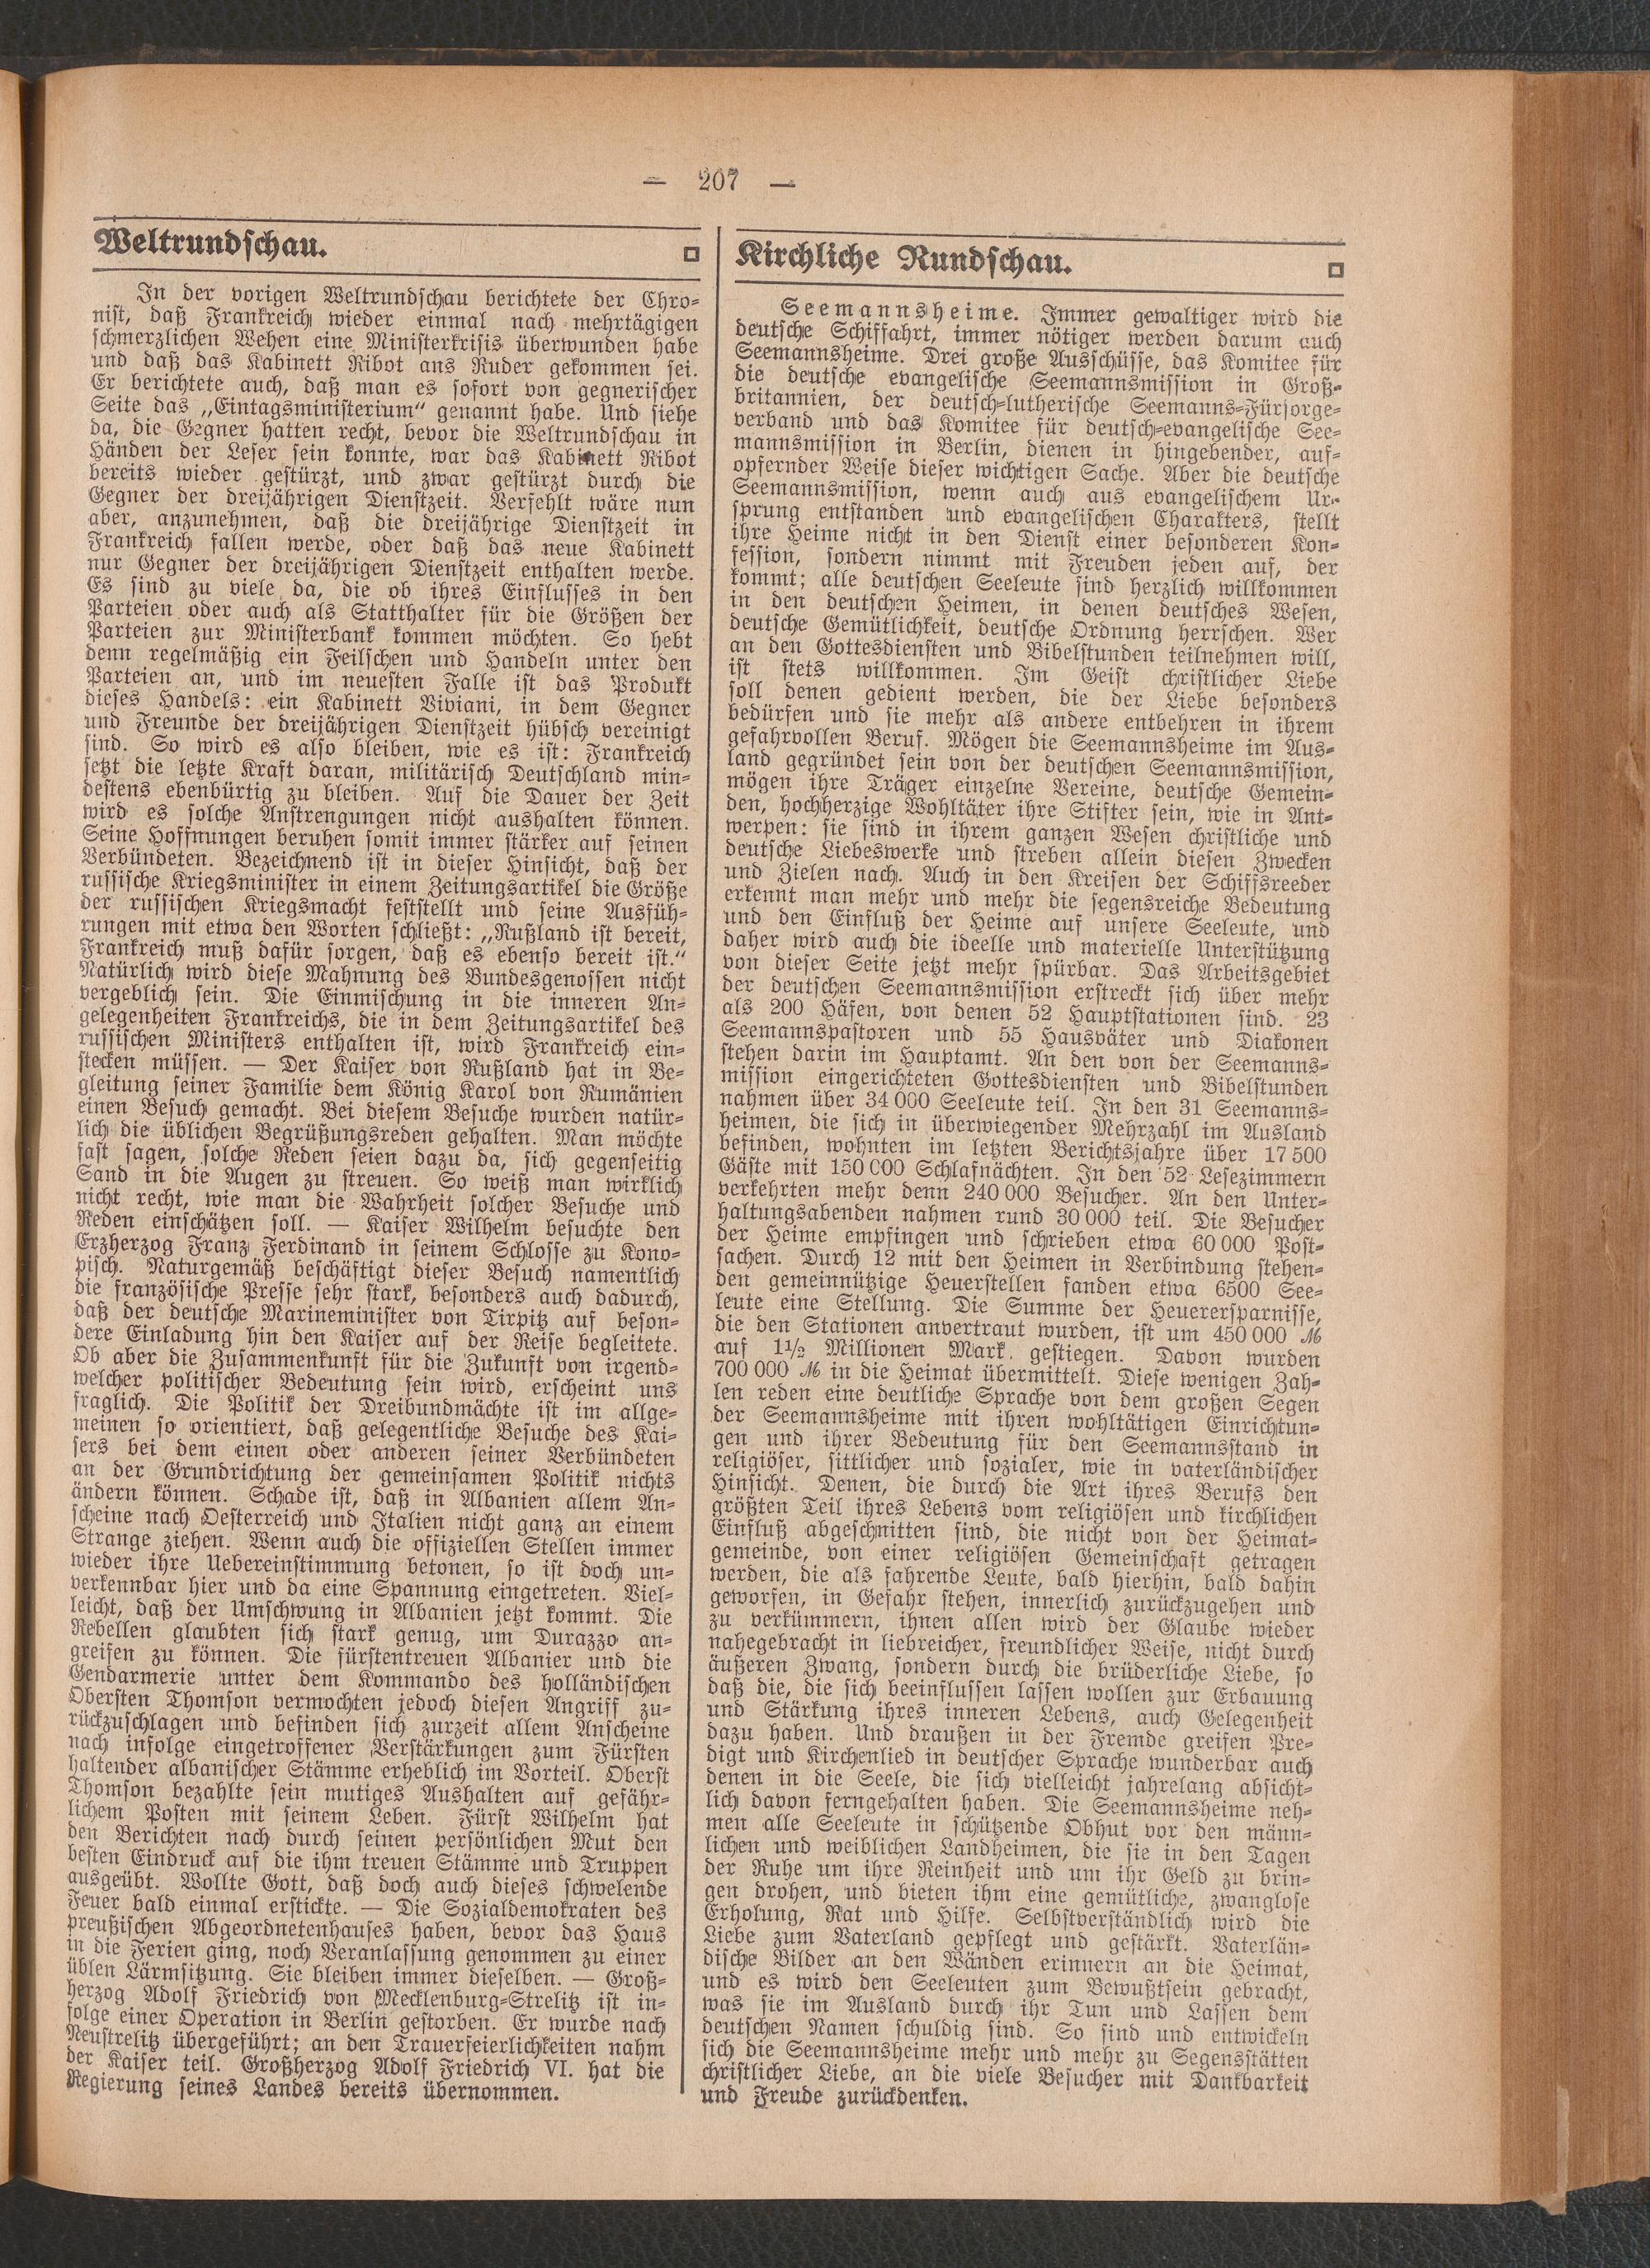 — 207 —
Weltrundschau.
In der vorigen Weltrundschau berichtete der Chro-
nist, daß Frankreich wieder einmal nach mehrtägigen
schmerzlichen Wehen eine Ministerkrisis überwunden habe
und daß das Kabinett Ribot ans Ruder gekommen sei.
Er berichtete auch, daß man es sofort von gegnerischer
Seite das „Eintagsministerium“ genannt habe. Und siehe
da, die Gegner hatten recht, bevor die Weltrundschau in
Händen der Leser sein konnte, war das Kabinett Ribot
bereits wieder gestürzt, und zwar gestürzt durch die
Gegner der dreijährigen Dienstzeit. Verfehlt wäre nun
aber, anzunehmen, daß die dreijährige Dienstzeit in
Frankreich fallen werde, oder daß das neue Kabinett
nur Gegner der dreijährigen Dienstzeit enthalten werde.
Es sind zu viele da, die ob ihres Einflusses in den
Parteien oder auch als Statthalter für die Größen der
Parteien zur Ministerbank kommen möchten. So hebt
denn regelmäßig ein Feilschen und Handeln unter den
Parteien an, und im neuesten Falle ist das Produkt
dieses Handels: ein Kabinett Viviani, in dem Gegner
und Freunde der dreijährigen Dienstzeit hübsch vereinigt
sind. So wird es also bleiben, wie es ist: Frankreich
setzt die letzte Kraft daran, militärisch Deutschland min-
destens ebenbürtig zu bleiben. Auf die Dauer der Zeit
wird es solche Anstrengungen nicht aushalten können.
Seine Hoffnungen beruhen somit immer stärker auf seinen
Verbündeten. Bezeichnend ist in dieser Hinsicht, daß der
russische Kriegsminister in einem Zeitungsartikel die Größe
der russischen Kriegsmacht feststellt und seine Ausfüh-
rungen mit etwa den Worten schließt: „Rußland ist bereit,
Frankreich muß dafür sorgen, daß es ebenso bereit ist.“
Natürlich wird diese Mahnung des Bundesgenossen nicht
vergeblich sein. Die Einmischung in die inneren An-
gelegenheiten Frankreichs, die in dem Zeitungsartikel des
russischen Ministers enthalten ist, wird Frankreich ein-
stecken müssen. — Der Kaiser von Rußland hat in Be-
gleitung seiner Familie dem König Karol von Rumänien
einen Besuch gemacht. Bei diesem Besuche wurden natür-
lich die üblichen Begrüßungsreden gehalten. Man möchte
fast sagen, solche Reden seien dazu da, sich gegenseitig
Sand in die Augen zu streuen. So weiß man wirklich
nicht recht, wie man die Wahrheit solcher Besuche und
Reden einschätzen soll. — Kaiser Wilhelm besuchte den
Erzherzog Franz Ferdinand in seinem Schlosse zu Kono-
pisch. Naturgemäß beschäftigt dieser Besuch namentlich
die französische Presse sehr stark, besonders auch dadurch,
daß der deutsche Marineminister von Tirpitz auf beson-
dere Einladung hin den Kaiser auf der Reise begleitete.
Ob aber die Zusammenkunft für die Zukunft von irgend-
welcher politischer Bedeutung sein wird, erscheint uns
fraglich. Die Politik der Dreibundmächte ist im allge-
meinen so orientiert, daß gelegentliche Besuche des Kai-
sers bei dem einen oder anderen seiner Verbündeten
an der Grundrichtung der gemeinsamen Politik nichts
ändern können. Schade ist, daß in Albanien allem An-
scheine nach Oesterreich und Italien nicht ganz an einem
Strange ziehen. Wenn auch die offiziellen Stellen immer
wieder ihre Uebereinstimmung betonen, so ist doch un-
verkennbar hier und da eine Spannung eingetreten. Viel-
leicht, daß der Umschwung in Albanien jetzt kommt. Die
Rebellen glaubten sich stark genug, um Durazzo an-
greifen zu können. Die fürstentreuen Albanier und die
Gendarmerie unter dem Kommando des holländischen
Obersten Thomson vermochten jedoch diesen Angriff zu-
rückzuschlagen und befinden sich zurzeit allem Anscheine
nach infolge eingetroffener Verstärkungen zum Fürsten
haltender albanischer Stämme erheblich im Vorteil. Oberst
Thomson bezahlte sein mutiges Aushalten auf gefähr-
lichem Posten mit seinem Leben. Fürst Wilhelm hat
den Berichten nach durch seinen persönlichen Mut den
besten Eindruck auf die ihm treuen Stämme und Truppen
ausgeübt. Wollte Gott, daß doch auch dieses schwelende
Feuer bald einmal erstickte. — Die Sozialdemokraten des
preußischen Abgeordnetenhauses haben, bevor das Haus
in die Ferien ging, noch Veranlassung genommen zu einer
üblen Lärmsitzung. Sie bleiben immer dieselben. — Groß-
herzog Adolf Friedrich von Mecklenburg-Strelitz ist in-
folge einer Operation in Berlin gestorben. Er wurde nach
Neustrelitz übergeführt; an den Trauerfeierlichkeiten nahm
der Kaiser teil. Großherzog Adolf Friedrich VI. hat die
Regierung seines Landes bereits übernommen.
Kirchliche Rundschau.
Seemannsheime. Immer gewaltiger wird die
deutsche Schiffahrt, immer nötiger werden darum auch
Seemannsheime. Drei große Ausschüsse, das Komitee für
die deutsche evangelische Seemannsmission in Groß-
britannien, der deutsch-lutherische Seemanns-Fürsorge-
verband und das Komitee für deutsch-evangelische See-
mannsmission in Berlin, dienen in hingebender, auf-
opfernder Weise dieser wichtigen Sache. Aber die deutsche
Seemannsmission, wenn auch aus evangelischem Ur-
sprung entstanden und evangelischen Charakters, stellt
ihre Heime nicht in den Dienst einer besonderen Kon-
fession, sondern nimmt mit Freuden jeden auf, der
kommt; alle deutschen Seeleute sind herzlich willkommen
in den deutschen Heimen, in denen deutsches Wesen,
deutsche Gemütlichkeit, deutsche Ordnung herrschen. Wer
an den Gottesdiensten und Bibelstunden teilnehmen will,
ist stets willkommen. Im Geist christlicher Liebe
soll denen gedient werden, die der Liebe besonders
bedürfen und sie mehr als andere entbehren in ihrem
gefahrvollen Beruf. Mögen die Seemannsheime im Aus-
land gegründet sein von der deutschen Seemannsmission,
mögen ihre Träger einzelne Vereine, deutsche Gemein-
den, hochherzige Wohltäter ihre Stifter sein, wie in Ant-
werpen: sie sind in ihrem ganzen Wesen christliche und
deutsche Liebeswerke und streben allein diesen Zwecken
und Zielen nach. Auch in den Kreisen der Schiffsreeder
erkennt man mehr und mehr die segensreiche Bedeutung
und den Einfluß der Heime auf unsere Seeleute, und
daher wird auch die ideelle und materielle Unterstützung
von dieser Seite jetzt mehr spürbar. Das Arbeitsgebiet
der deutschen Seemannsmission erstreckt sich über mehr
als 200 Häfen, von denen 52 Hauptstationen sind. 23
Seemannspastoren und 55 Hausväter und Diakonen
stehen darin im Hauptamt. An den von der Seemanns-
mission eingerichteten Gottesdiensten und Bibelstunden
nahmen über 34 000 Seeleute teil. In den 31 Seemanns-
heimen, die sich in überwiegender Mehrzahl im Ausland
befinden, wohnten im letzten Berichtsjahre über 17 500
Gäste mit 150 000 Schlafnächten. In den 52 Lesezimmern
verkehrten mehr denn 240 000 Besucher. An den Unter-
haltungsabenden nahmen rund 30 000 teil. Die Besucher
der Heime empfingen und schrieben etwa 60 000 Post-
sachen. Durch 12 mit den Heimen in Verbindung stehen-
den gemeinnützige Heuerstellen fanden etwa 6500 See-
leute eine Stellung. Die Summe der Heuerersparnisse,
die den Stationen anvertraut wurden, ist um 450 000 ℳ
auf 1½ Millionen Mark gestiegen. Davon wurden
700 000 ℳ in die Heimat übermittelt. Diese wenigen Zah-
len reden eine deutliche Sprache von dem großen Segen
der Seemannsheime mit ihren wohltätigen Einrichtun-
gen und ihrer Bedeutung für den Seemannsstand in
religiöser, sittlicher und sozialer, wie in vaterländischer
Hinsicht. Denen, die durch die Art ihres Berufs den
größten Teil ihres Lebens vom religiösen und kirchlichen
Einfluß abgeschnitten sind, die nicht von der Heimat-
gemeinde, von einer religiösen Gemeinschaft getragen
werden, die als fahrende Leute, bald hierhin, bald dahin
geworfen, in Gefahr stehen, innerlich zurückzugehen und
zu verkümmern, ihnen allen wird der Glaube wieder
nahegebracht in liebreicher, freundlicher Weise, nicht durch
äußeren Zwang, sondern durch die brüderliche Liebe, so
daß die, die sich beeinflussen lassen wollen zur Erbauung
und Stärkung ihres inneren Lebens, auch Gelegenheit
dazu haben. Und draußen in der Fremde greifen Pre-
digt und Kirchenlied in deutscher Sprache wunderbar auch
denen in die Seele, die sich vielleicht jahrelang absicht-
lich davon ferngehalten haben. Die Seemannsheime neh-
men alle Seeleute in schützende Obhut vor den männ-
lichen und weiblichen Landheimen, die sie in den Tagen
der Ruhe um ihre Reinheit und um ihr Geld zu brin-
gen drohen, und bieten ihm eine gemütliche, zwanglose
Erholung, Rat und Hilfe. Selbstverständlich wird die
Liebe zum Vaterland gepflegt und gestärkt. Vaterlän-
dische Bilder an den Wänden erinnern an die Heimat,
und es wird den Seeleuten zum Bewußtsein gebracht,
was sie im Ausland durch ihr Tun und Lassen dem
deutschen Namen schuldig sind. So sind und entwickeln
sich die Seemannsheime mehr und mehr zu Segensstätten
christlicher Liebe, an die viele Besucher mit Dankbarkeit
und Freude zurückdenken.